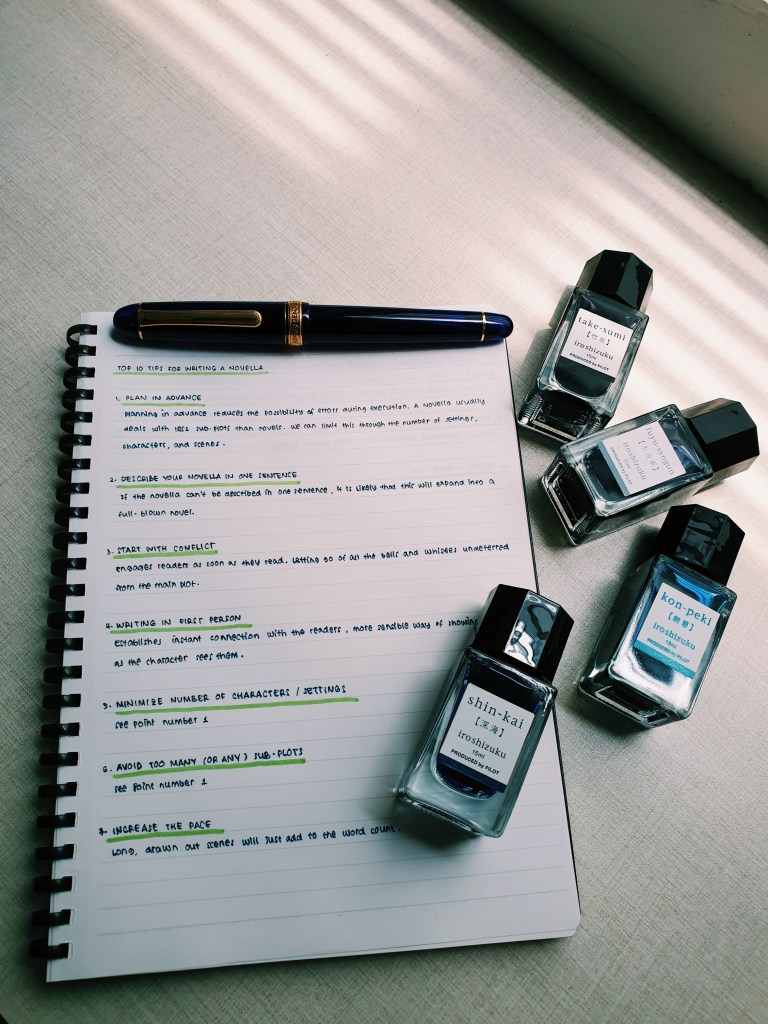 TOP 10 TIPS FOR WRITING A NOVELLA
1. PLAN IN ADVANCE
Planning in advance reduces the possibility of errors during execution. A novella usually
deals with less sub-plots than novels. We can limit this through the number of settings,
characters, and scenes.
2. DESCRIBE YOUR NOVELLA IN ONE SENTENCE
If the novella can't be described in one sentence, it is likely that this will expand into a
full-blown novel.
3. START WITH CONFLICT
engages readers as soon as they read. Letting go of all the bells and whistles undeterred
from the main plot.
4. WRITING IN FIRST PERSON
Establishes instant connection with the readers, more sensible way of showing
as the character sees them.
5. MINIMIZE NUMBER OF CHARACTERS / SETTINGS
see point number 1
6. AVOID TOO MANY (OR ANY) SUB-PLOTS
see point number 1
7. INCREASE THE PACE
Long, drawn out scenes will just add to the word count.
take-sumi
【竹炭】
iroshizuku
15ml
PRODUCED by PILOT
fuyu-syogun
iroshizuku
15ml
kon-peki
【紺碧】
iroshizuku
15ml
PRODUCED by PILOT
shin-kai
【深海】
iroshizuku
15ml
PRODUCED by PILOT